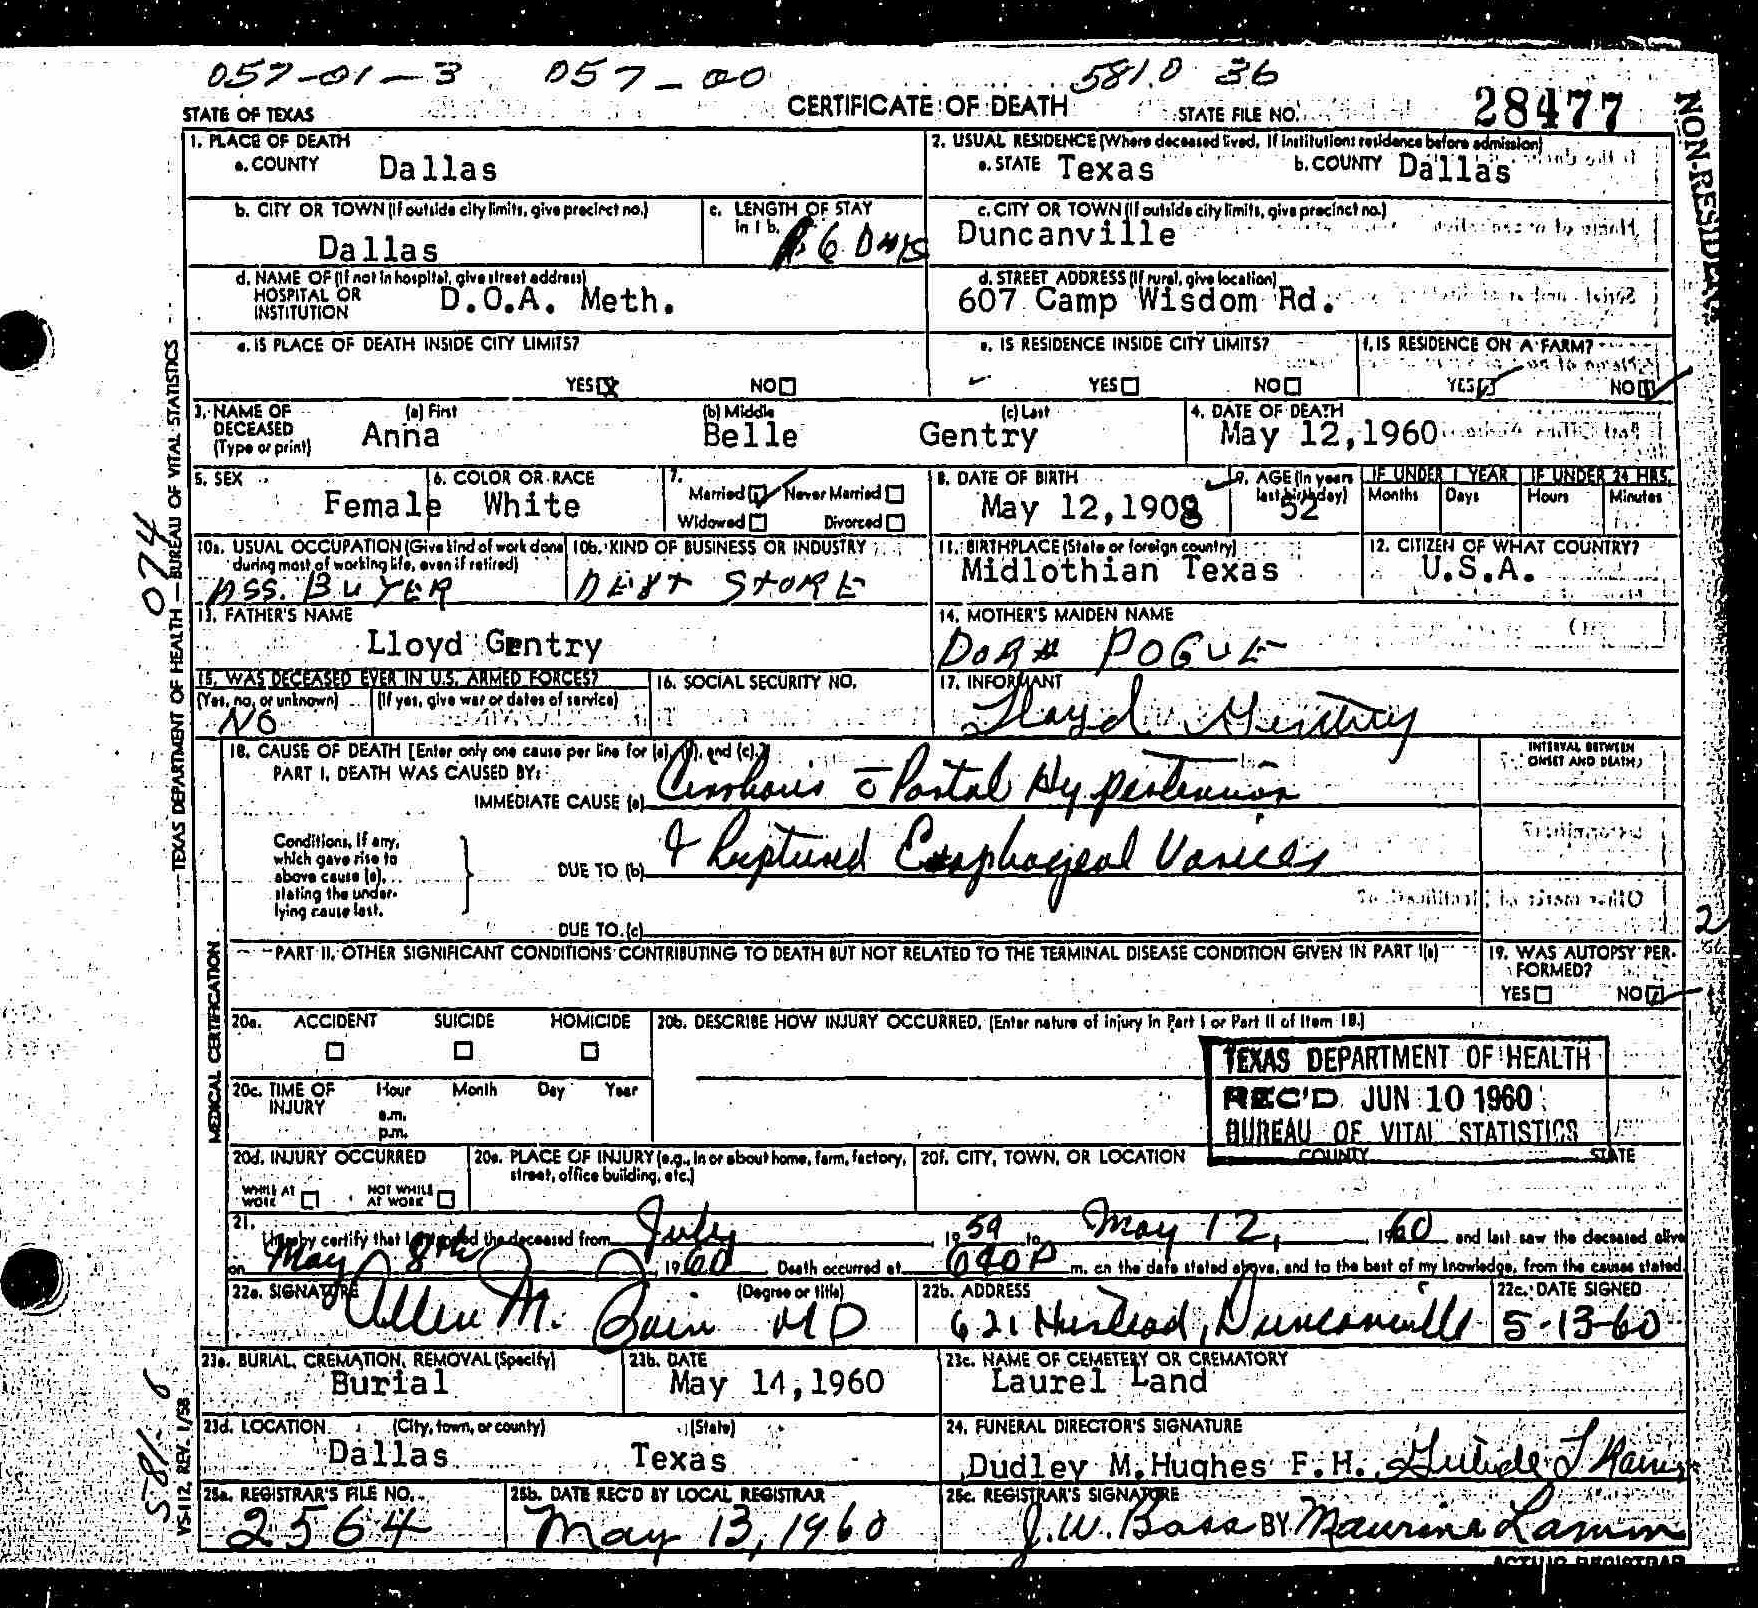 057-01-3 057-00 5810 36
STATE OF TEXAS CERTIFICATE OF DEATH STATE FILE NO. 28477
NON-RESIDENT
1. PLACE OF DEATH
a. COUNTY Dallas
2. USUAL RESIDENCE (Where deceased lived. If institution: residence before admission)
a. STATE Texas b. COUNTY Dallas
b. CITY OR TOWN (If outside city limits, give precinct no.)
Dallas
c. LENGTH OF STAY
in 1 b. 6 DAYS
c. CITY OR TOWN (If outside city limits, give precinct no.)
Duncanville
d. NAME OF (If not in hospital, give street address)
HOSPITAL OR
INSTITUTION D.O.A. Meth.
d. STREET ADDRESS (If rural, give location)
607 Camp Wisdom Rd.
e. IS PLACE OF DEATH INSIDE CITY LIMITS?
YES NO
e. IS RESIDENCE INSIDE CITY LIMITS?
YES NO
f. IS RESIDENCE ON A FARM?
YES NO
3. NAME OF DECEASED (Type or print)
(a) First (b) Middle (c) Last
Anna Belle Gentry
4. DATE OF DEATH
May 12,1960
5. SEX
Female
6. COLOR OR RACE
White
7.
Married Never Married
Widowed Divorced
8. DATE OF BIRTH
May 12,1908
9. AGE (In years last birthday)
52
IF UNDER 1 YEAR
Months Days
IF UNDER 24 HRS.
Hours Minutes
10a. USUAL OCCUPATION (Give kind of work done during most of working life, even if retired)
ASS. BUYER
10b. KIND OF BUSINESS OR INDUSTRY
DEPT STORE
11. BIRTHPLACE (State or foreign country)
Midlothian Texas
12. CITIZEN OF WHAT COUNTRY?
U.S.A.
13. FATHER'S NAME
Lloyd Gentry
14. MOTHER'S MAIDEN NAME
DORA POGUE
15. WAS DECEASED EVER IN U.S. ARMED FORCES?
(Yes, no, or unknown) (If yes, give war or dates of service)
NO
16. SOCIAL SECURITY NO.
17. INFORMANT
Lloyd Gentry
18. CAUSE OF DEATH [Enter only one cause per line for (a), (b), and (c).]
PART I. DEATH WAS CAUSED BY:
IMMEDIATE CAUSE (a) Cirrhosis c̄ Portal Hypertension
INTERVAL BETWEEN ONSET AND DEATH
Conditions, if any, which gave rise to above cause (a), stating the underlying cause last.
DUE TO (b) & Ruptured Esophageal Varices
DUE TO (c)
PART II. OTHER SIGNIFICANT CONDITIONS CONTRIBUTING TO DEATH BUT NOT RELATED TO THE TERMINAL DISEASE CONDITION GIVEN IN PART I(a)
19. WAS AUTOPSY PERFORMED?
YES NO
20a. ACCIDENT SUICIDE HOMICIDE
20b. DESCRIBE HOW INJURY OCCURRED. (Enter nature of injury in Part I or Part II of Item 18.)
20c. TIME OF INJURY
Hour Month Day Year
a.m.
p.m.
TEXAS DEPARTMENT OF HEALTH
REC'D JUN 10 1960
BUREAU OF VITAL STATISTICS
20d. INJURY OCCURRED
WHILE AT WORK NOT WHILE AT WORK
20e. PLACE OF INJURY (e.g., in or about home, farm, factory, street, office building, etc.)
20f. CITY, TOWN, OR LOCATION COUNTY STATE
21.
I hereby certify that I attended the deceased from July 1959 to May 12, 1960 and last saw the deceased alive
on May 8th, 1960. Death occurred at 640 P m. on the date stated above, and to the best of my knowledge, from the causes stated.
22a. SIGNATURE (Degree or title)
Allen M. Bain MD
22b. ADDRESS
621 Duncanville
22c. DATE SIGNED
5-13-60
23a. BURIAL, CREMATION, REMOVAL (Specify)
Burial
23b. DATE
May 14,1960
23c. NAME OF CEMETERY OR CREMATORY
Laurel Land
23d. LOCATION (City, town, or county) (State)
Dallas Texas
24. FUNERAL DIRECTOR'S SIGNATURE
Dudley M. Hughes F.H.
25a. REGISTRAR'S FILE NO.
2564
25b. DATE REC'D BY LOCAL REGISTRAR
May 13, 1960
25c. REGISTRAR'S SIGNATURE
J.W. Bass BY Maurine Lamm
ACTING REGISTRAR
TEXAS DEPARTMENT OF HEALTH — BUREAU OF VITAL STATISTICS
074
MEDICAL CERTIFICATION
VS-112, REV. 1/58
581-6
2